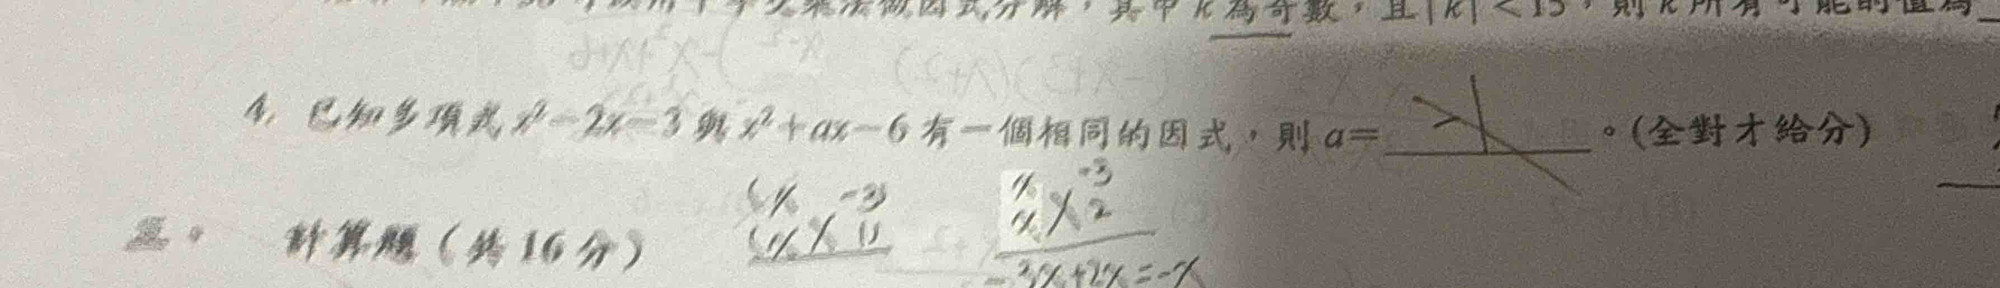 其中k為奇數，且|k|<15，則k所有可能的值為
4. 已知多項式x²-2x-3與x²+ax-6有一個相同的因式，則a= -1 。(全對才給分)
三。 計算題（共16分）
x -3
x 1
x -3
x 2
-3x+2x=-x